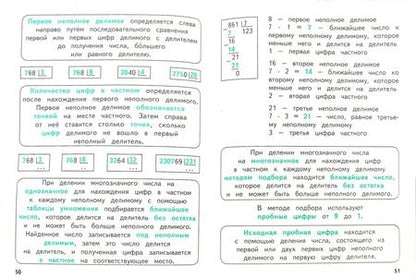 Первое неполное делимое определяется слева
направо путём последовательного сравнения
первой или первых цифр делимого с делителем
до получения числа, бóльшего
или равного делителю.
768|3 768|8 2040|4 7750|25
Количество цифр в частном определяется
после нахождения первого неполного делимого.
Первое неполное делимое обозначается
точкой на месте частного. Затем справа
от неё ставится столько точек, сколько
цифр делимого не вошло в первый
неполный делитель.
768|3 768|8 3264|32 230769|231
При делении многозначного числа на
однозначное для нахождения цифр в частном
к каждому неполному делимому с помощью
таблицы умножения подбирается ближайшее
число, которое делится на делитель без остатка
и не может быть больше неполного делимого.
Найденное число записывается под неполным
делимым, затем это число делится
на делитель, и полученная цифра записывается
в частное на соответствующее место.
50
861|7
7 123
16
14
21
21
0
8 — первое неполное делимое
7 · 1 = 7 — ближайшее число к
первому неполному делимому, которое
меньше него и делится на делитель
1 — первая цифра частного
16 — второе неполное делимое
7 · 2 = 14 — ближайшее число ко
второму неполному делимому, которое
меньше него и делится на делитель
2 — вторая цифра частного
21 — третье неполное делимое
7 · 3 = 21 — число, равное третье-
му неполному делимому
3 — третья цифра частного
При делении многозначного числа
на многозначное для нахождения цифр
в частном к каждому неполному делимому
методом подбора находится ближайшее число,
которое делится на делитель без остатка
и не может быть больше неполного делимого.
В методе подбора используют
пробные цифры от 9 до 1.
Исходная пробная цифра находится
с помощью деления числа, состоящего из
первой или двух первых цифр неполного
делимого на первую цифру делителя.
51